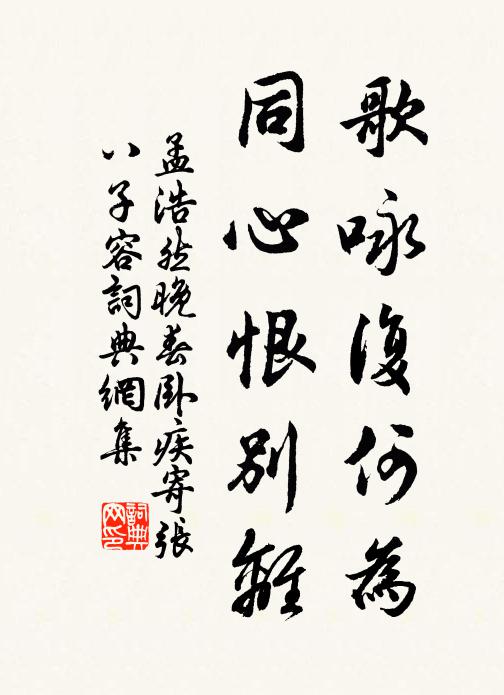 歌咏復何為
同心恨別離
孟浩然晚春臥疾寄張
八子容詞典網集
詞典
网印